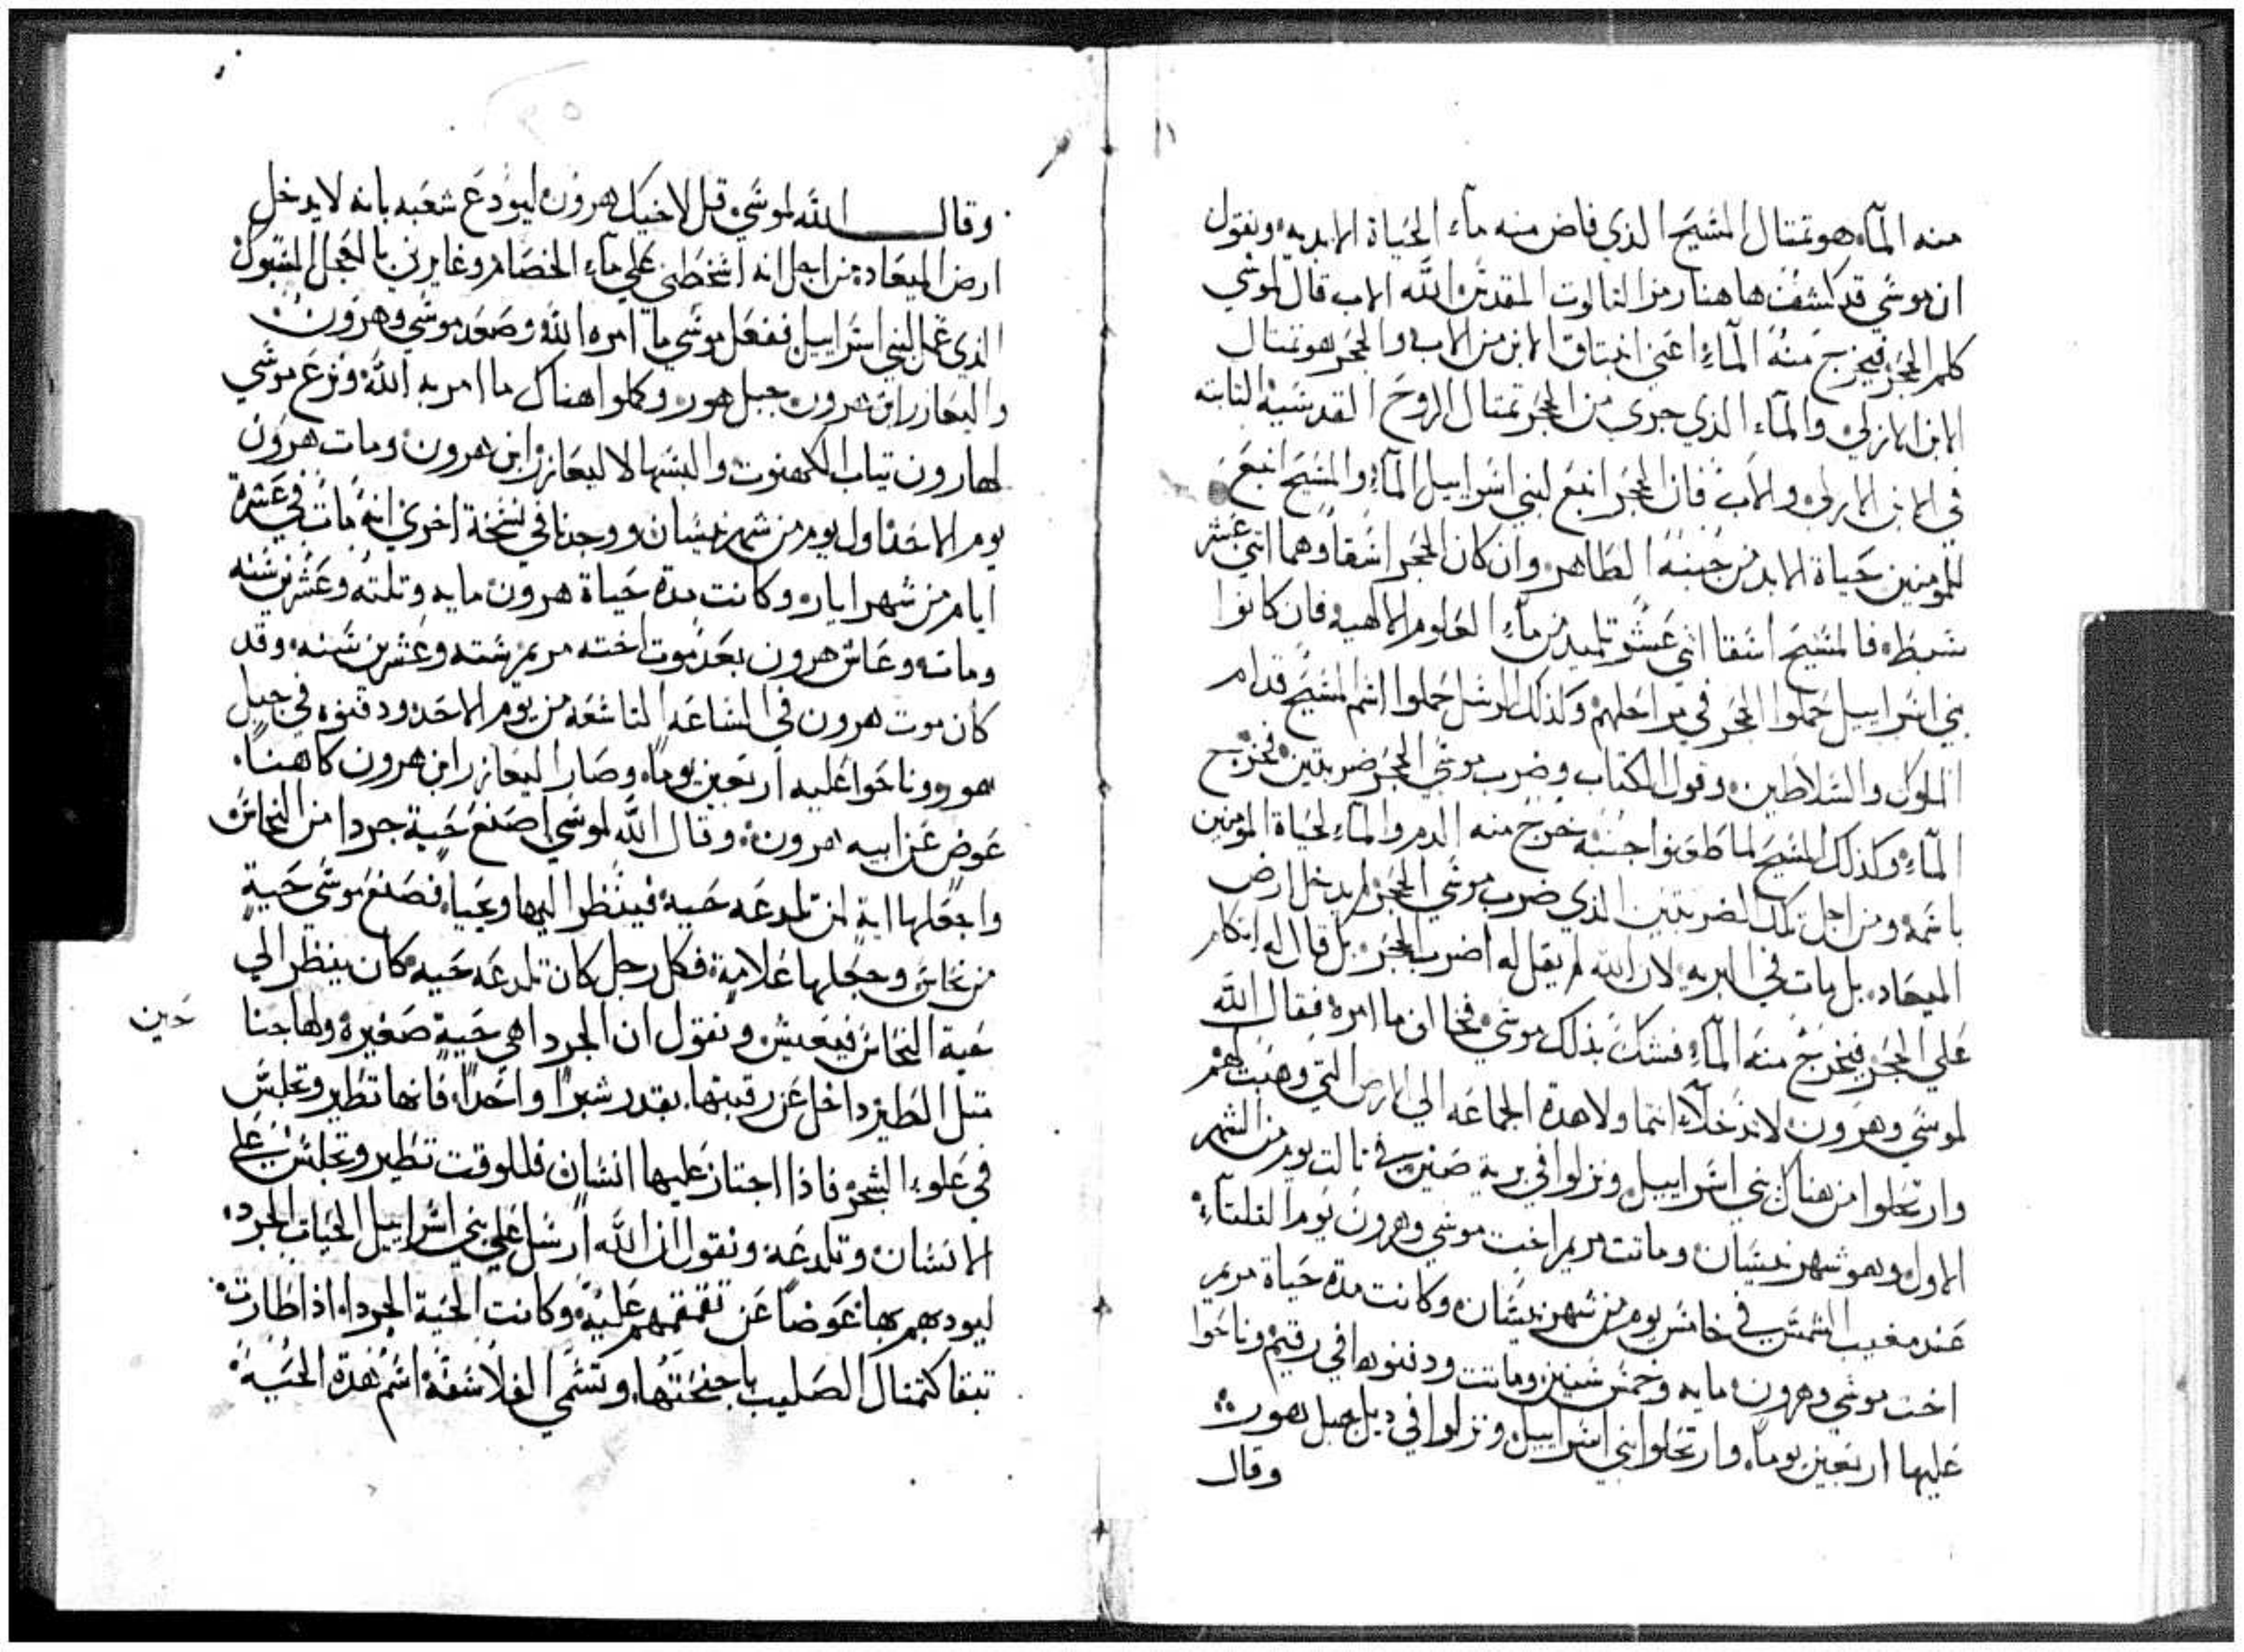 منه المآء هو تمتال المسَيح الذي فاض منه مآء الحَياة الابديه ونقول
ان موسَي قد كشفت هاهنا رمز التالوت المقدسَ الله الاب قال لموسَي
كلم الحجَر فيخرج منهُ المآءِ اعَني انبتاق الابن من الاب والحجَر هو تمتال
الابن الازلي والمآء الذي جري من الحجَر تمتال الروحَ القدسَية التابته
في الابن الازلي والاب فان الحجَر انبعَ لبني اسَراييل المآءِ والمسَيحَ انبعَ
للمومنين حَياة الابد من جَنبهُ الطاهر وان كان الحجَر اسَقا وهما اتني عَشر
سَبط فالمسَيحَ اسَقا اتني عَشر تلميد من مآءِ العَلوم الالاهيه فان كانوا
بني اسَراييل حَملوا الحجَر في مراحَلهم وكذلك الرسَل حَملوا اسَم المسَيحَ قدام
الملوك والسَلاطين وقول الكتاب وضرب موسَي الحجَر ضربتين فخرج
المآءِ وكذلك المسَيحَ لما طعَنوا جنبُه خرج منه الدم والمآءِ لحَياة المومنين
باسَمه ومن اجل تلك الضربتين الذي ضرب موسَي الحجَر لم يدخل ارض
الميعَاد بل مات في البريه لان الله لم يقل له اضرب الحجَر بل قال له اتكلم
عَلي الحجَر فيخرجُ منهَ المآءِ فشكَ بذلك موسَي فخالف ما امره فقال الله
لموسَي وهرون لا تدخلآءَ انتما ولا هدة الجماعَه الي الارض التي وهبتَ لهم
وارتحَلوا من هناك بني اسَراييل ونزلوا في برية صَين في تالت يوم من الشهر
الاول وهو شهر نيسَان وماتت مريم اخت موسَي وهرون يوم التلتآءِ
عَند مغيب الشمسَ في خامسَ يوم من شهر نيسَان وكانت مدة حَياة مريم
اخت موسَي وهرون مايه وخمسَ سَنين وماتت ودفنوها في رقيم وناحَوا
عَليها اربعَين يومًا وارتحَلوا بني اسَراييل ونزلوا في ديل جبل هور
وقال
وقال الله لموسَي قل لاخيك هرون ليودعَ شعَبه بانه لا يدخل
ارض الميعَاد من اجل انه اسَخطني عَلي مآءِ الخصَام وغايرني بالعَجل المسَبوك
الذي عَمل لبني اسَراييل ففعَل موسَي ما امره الله وصَعَد موسَي وهرون
واليعَازر ابن هرون جبل هور وكملوا هناك ما امر به الله ونزعَ موسَي
لهارون تياب الكهنوت والبسَها لاليعَازر ابن هرون ومات هرون
يوم الاحَد اول يوم من شهر نيسَان ووجدنا في نسَخة اخري انهُ مات في عَشرة
ايام من شهر ايار وكانت مدة حَياة هرون مايه وتلتهُ وعَشرين سَنه
ومات وعَاش هرون بعَد موت اخته مريم سَته وعَشرين سَنه وقد
كان موت هرون في السَاعَه التاسَعَه من يوم الاحَد ودفنوه في جبل
هور وناحَوا عَليه اربعَين يومًا وصَار اليعَازر ابن هرون كاهنًا
عَوض عَن ابيه هرون وقال الله لموسَي اصَنعَ حَية جردا من النحَاسَ
واجعَلها اية لمن تلدعَه حَية فينظر اليها ويحَيا فصَنعَ موسَي حَيةٍ
من نحَاسَ وجعَلها عَلامة فكل رجل كان تلدعَه حَيه كان ينظر الي
حَية النحَاسَ فيعَيش ونقول ان الجردا هي حَيةٍ صَغيرة ولها جنا
حَين
متل الطير داخل عَن رقبتها بقدر شبرًا واحَدًا فانها تطير وتجلسَ
في عَلو الشجر فاذا اجتاز عَليها انسَان فللوقت تطير وتجلسَ عَلي
الانسَان وتلدعَه ونقول ان الله ارسَل عَلي بني اسَراييل الحَيات الجرد
ليودبهم بها عَوضًا عَن تقمقمهم عَليهُ وكانت الحَية الجردا اذا طارت
تبقا كتمتال الصَليب باجنحَتها وتسَمي الفلاسَفة اسَم هدة الحَيهُ